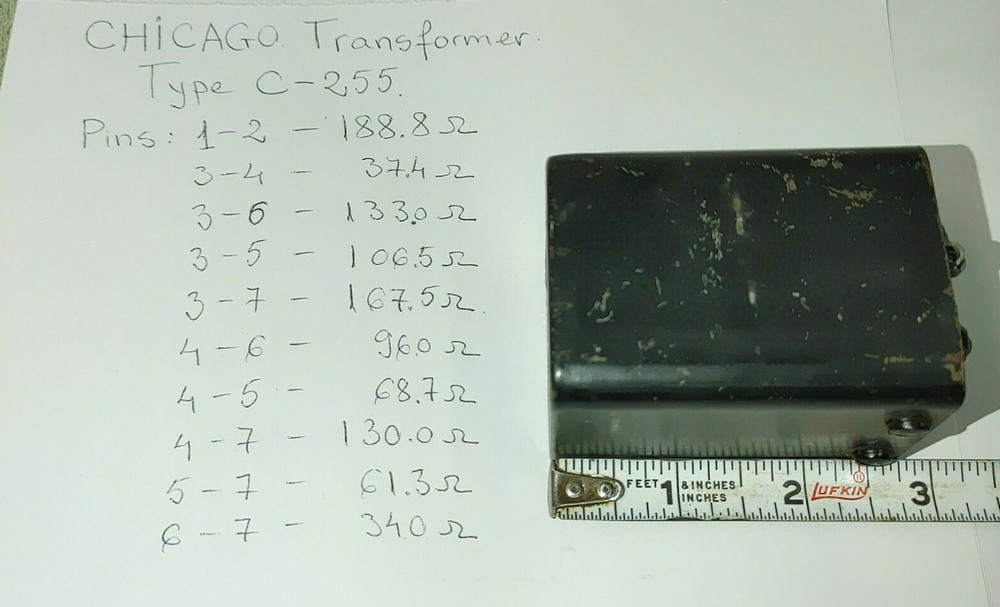 CHICAGO Transformer.
Type C-255.
Pins: 1-2 - 188.8 Ω
3-4 - 37.4 Ω
3-6 - 133.0 Ω
3-5 - 106.5 Ω
3-7 - 167.5 Ω
4-6 - 96.0 Ω
4-5 - 68.7 Ω
4-7 - 130.0 Ω
5-7 - 61.3 Ω
6-7 - 34.0 Ω
FEET 1 & INCHES 2 LUFKIN ® 3
INCHES